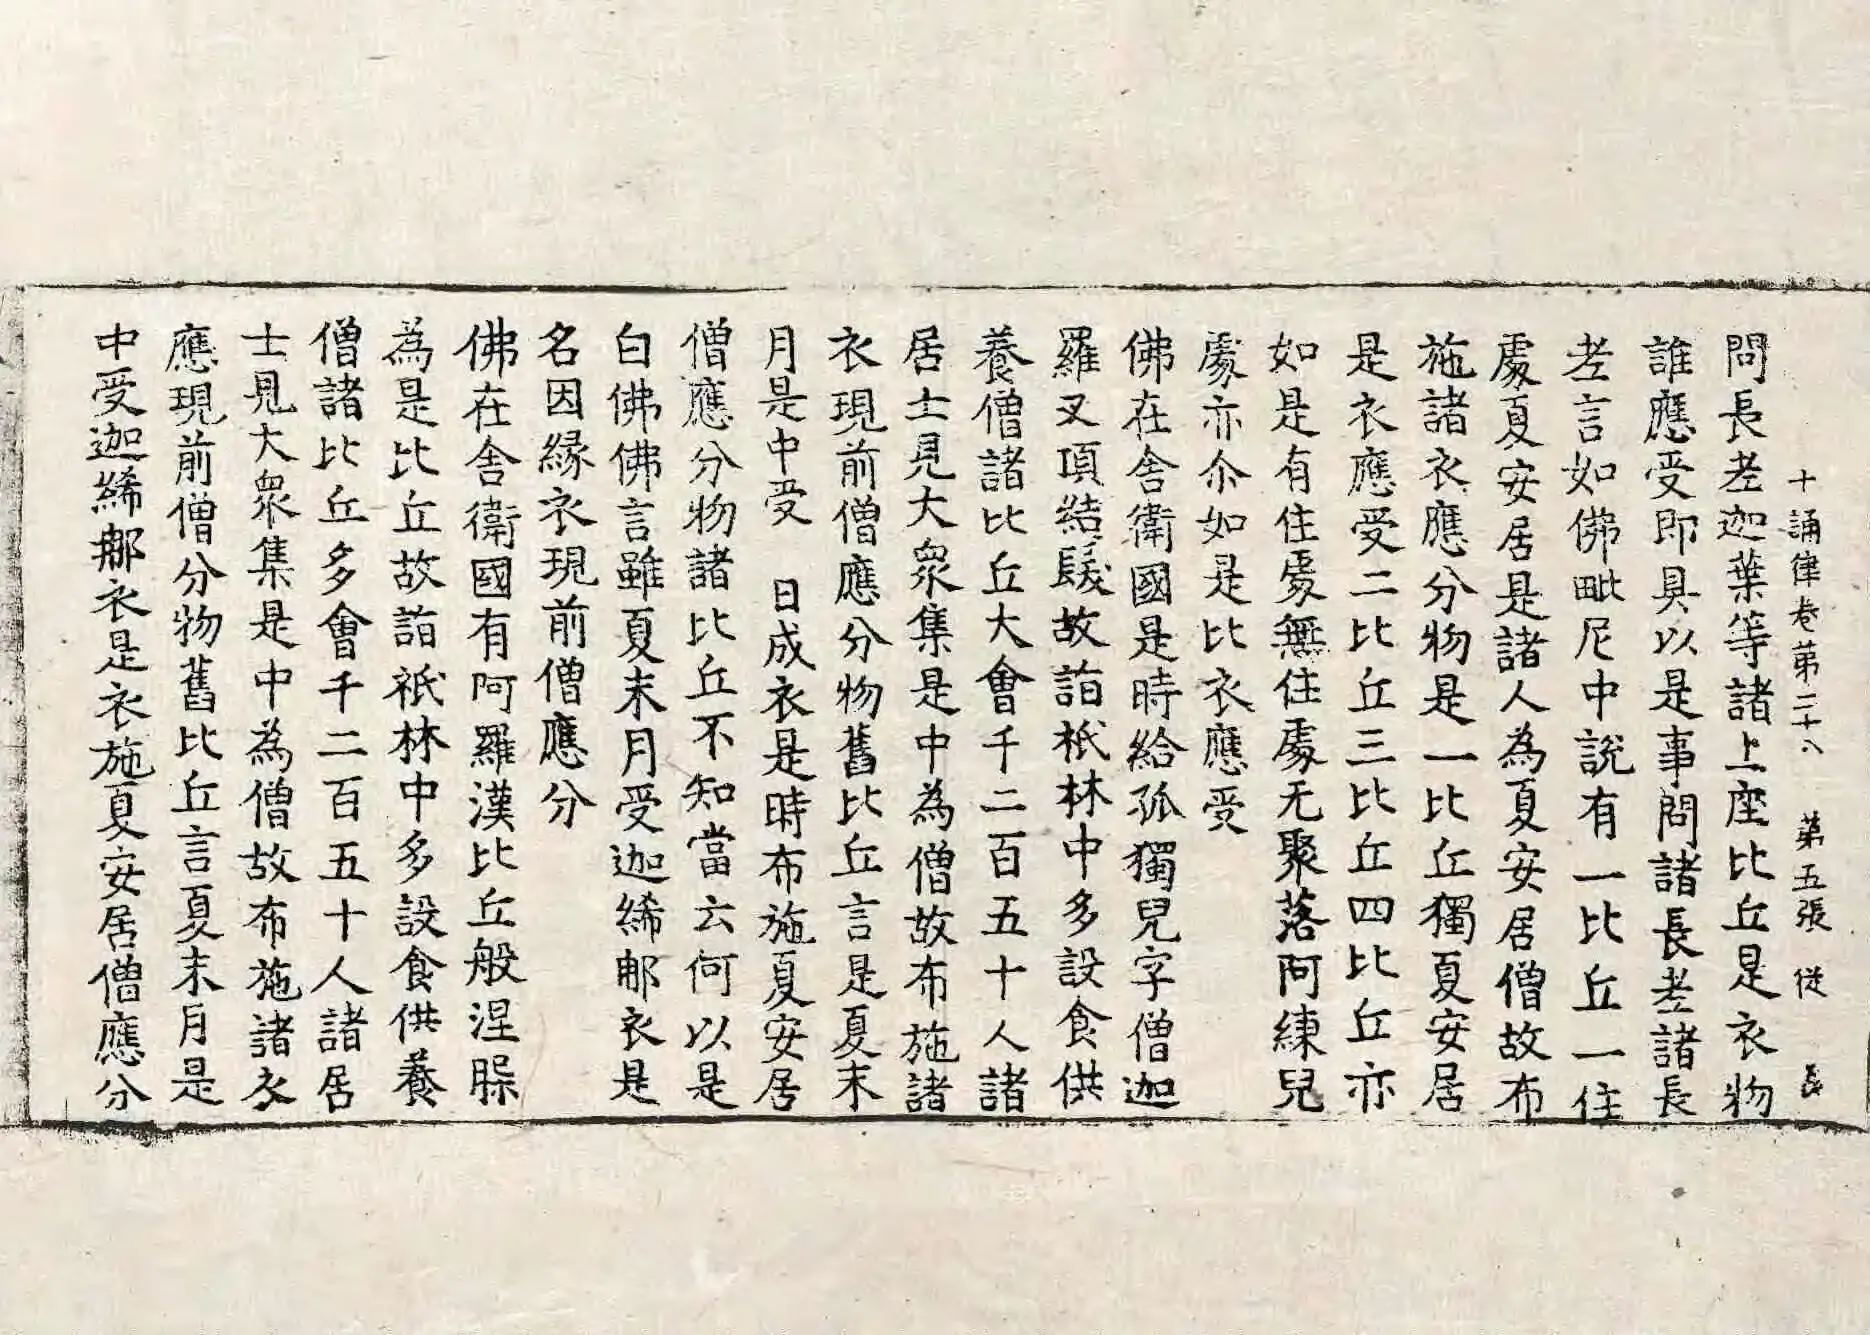 十誦律卷第二十八 第五張 從
問長老迦葉等諸上座比丘是衣物
誰應受即具以是事問諸長老諸長
老言如佛毗尼中說有一比丘一住
處夏安居是諸人為夏安居僧故布
施諸衣應分物是一比丘獨夏安居
是衣應受二比丘三比丘四比丘亦
如是有住處無住處无聚落阿練兒
處亦尒如是比衣應受
佛在舍衛國是時給孤獨兒字僧迦
羅叉項結髮故詣祇林中多設食供
養僧諸比丘大會千二百五十人諸
居士見大眾集是中為僧故布施諸
衣現前僧應分物舊比丘言是夏末
月是中受 日成衣是時布施夏安居
僧應分物諸比丘不知當云何以是
白佛佛言雖夏末月受迦絺那衣是
名因緣衣現前僧應分
佛在舍衛國有阿羅漢比丘般涅槃
為是比丘故詣祇林中多設食供養
僧諸比丘多會千二百五十人諸居
士見大眾集是中為僧故布施諸衣
應現前僧分物舊比丘言夏末月是
中受迦絺那衣是衣施夏安居僧應分